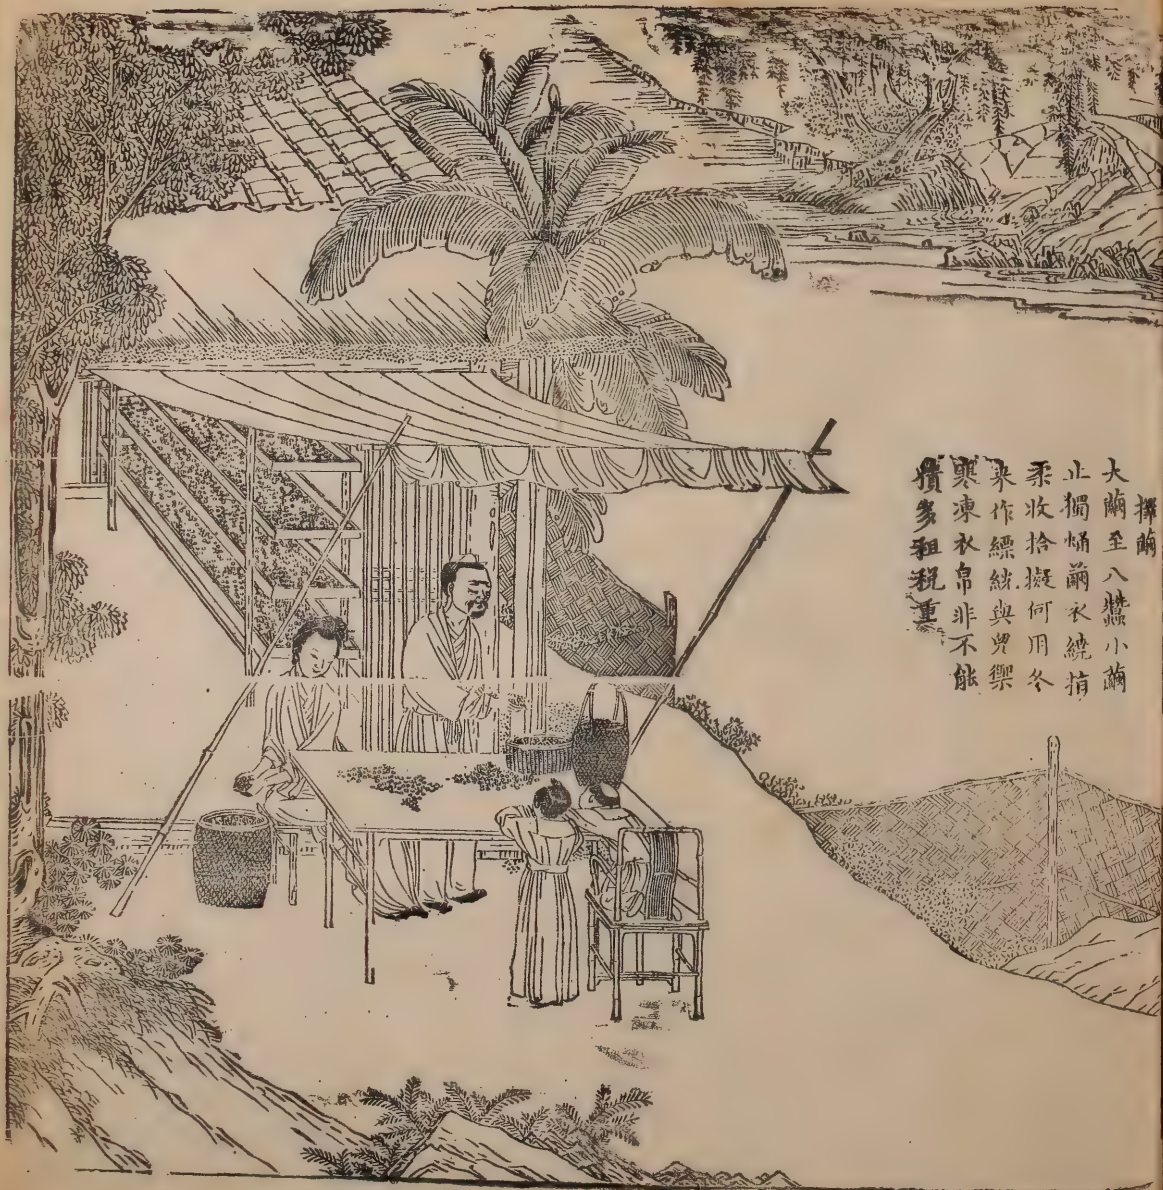 擇繭
大繭至八蠶小繭
止獨蛹繭衣繞指
柔收拾擬何用冬
來作縹絖與兒禦
寒凍衣帛非不能
債多租稅重